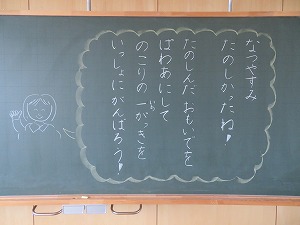 なつやすみ
たのしかったね!
たのしんだ おもいでを
ぱわあにして
のこりの 一がっきを
いっしょにがんばろう!